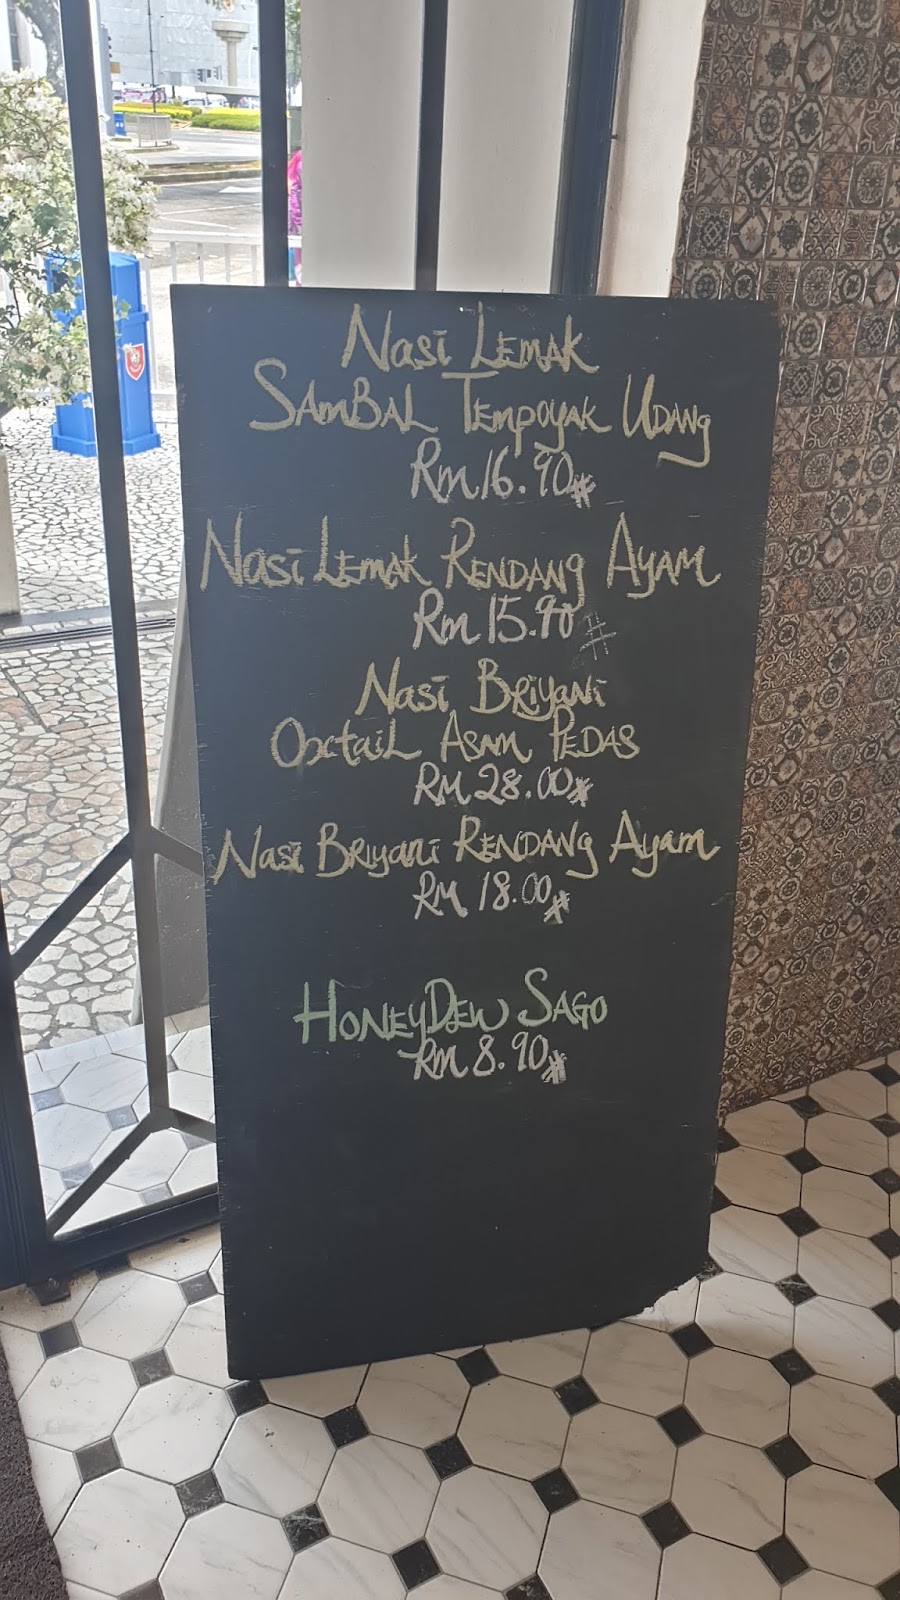 Nasi Lemak
Sambal Tempoyak Udang
Rm 16.90#
Nasi Lemak Rendang Ayam
Rm 15.90#
Nasi Briyani
Oxtail Asam Pedas
RM 28.00#
Nasi Briyani Rendang Ayam
RM 18.00#
HoneyDew Sago
RM 8.90#